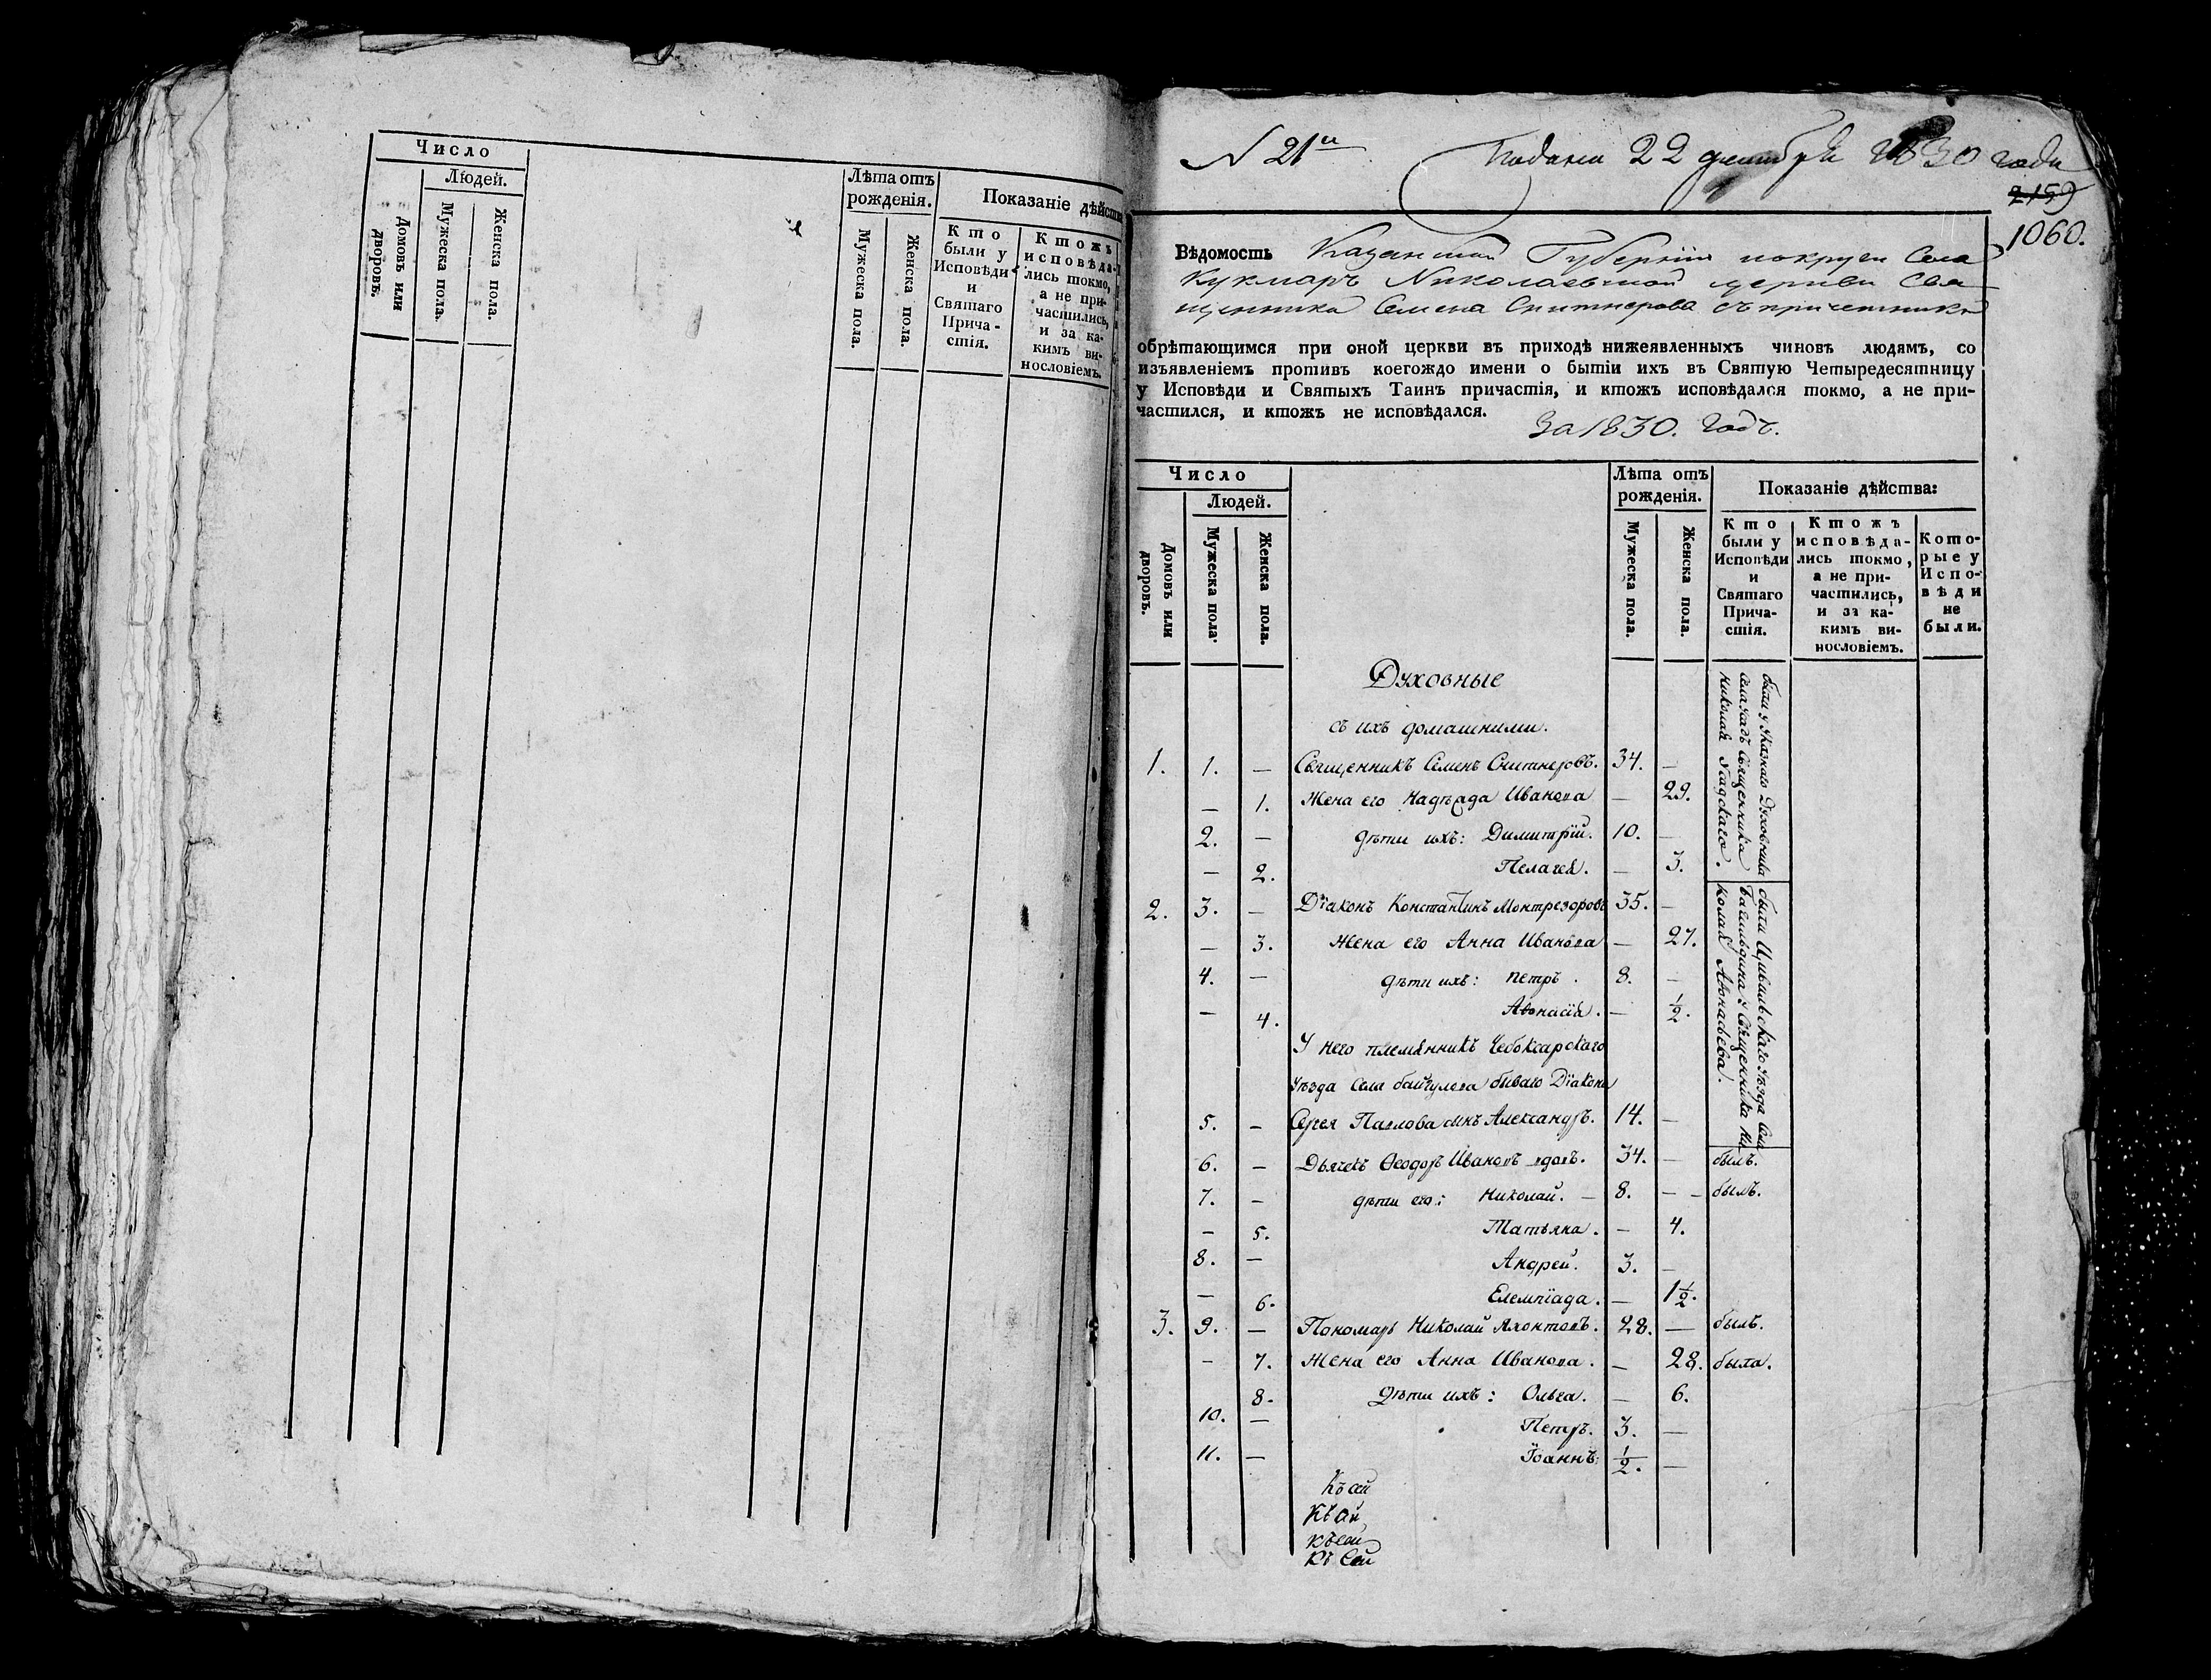 Число
Людей.
Домовъ или дворовъ.
Мужеска пола.
Женска пола.
Лѣта отъ рожденія.
Мужеска пола.
Женска пола.
Показаніе дѣйств
Кто были у Исповѣди и Святаго Прича-стія.
Ктожъ исповѣда-лись токмо, а не при-частились, и за ка-кимъ ви-нословіемъ.
N 21й Подана 22 декабря 1830 года
2159
1060.
Вѣдомость Казанской Губерніи округи Села
Кукмаръ Николаевской церкви Свя-
щенника Семена Смитнерова съ причетники
обрѣтающимся при оной церкви въ приходѣ нижеявленныхъ чиновъ людямъ, со
изъявленіемъ противъ коегождо имени о бытіи ихъ въ Святую Четыредесятницу
у Исповѣди и Святыхъ Таинъ причастія, и ктожъ исповѣдался токмо, а не при-
частился, и ктожъ не исповѣдался.
За 1830. годъ.
Число
Людей.
Домовъ или дворовъ.
Мужеска пола.
Женска пола.
Лѣта отъ рожденія.
Мужеска пола.
Женска пола.
Показаніе дѣйства:
Кто были у Исповѣди и Святаго Прича-стія.
Ктожъ исповѣда-лись токмо, а не при-частились, и за ка-кимъ ви-нословіемъ.
Кото-рые у Испо-вѣди не были.
Духовные
съ ихъ домашними.
1. 1. — Священникъ Семенъ Смитнеровъ. 34. —
— 1. Жена его Надежда Иванова — 29.
2. — дѣти ихъ: Димитрій. 10. —
— 2. Пелагея. — 3.
были у Указнаго Духовника
села Священника
Николая
2. 3. — Діаконъ Константинъ Монтрезоровъ 35. —
— 3. Жена его Анна Иванова — 27.
4. — дѣти ихъ: Петръ. 8. —
— 4. Аѳонасія. — 1/2.
У него племянникъ Чебоксарскаго
уѣзда села Байгулова бываго Діакона
5. — Сергея Павлова сынъ Александръ. 14. —
были Цивильскаго уѣзда Села
Багильдина у Священника Ни
колая Аѳонасьева.
6. — Дьячекъ Ѳеодоръ Ивановъ вдовъ. 34. — былъ.
7. — дѣти его: Николай. — 8. — — былъ.
— 5. Татьяна. — 4.
8. — Андрей. 3. —
— 6. Елемпіада. — 1 1/2.
3. 9. — Пономарь Николай Ахонтовъ. 28. — былъ.
— 7. Жена его Анна Иванова. — 28. была.
8. дѣти ихъ: Ольга. — 6.
10. — Петръ. 3. —
11. — Іоаннъ: 1/2. —
Къ сей
Къ сей
Къ сей
Къ сей